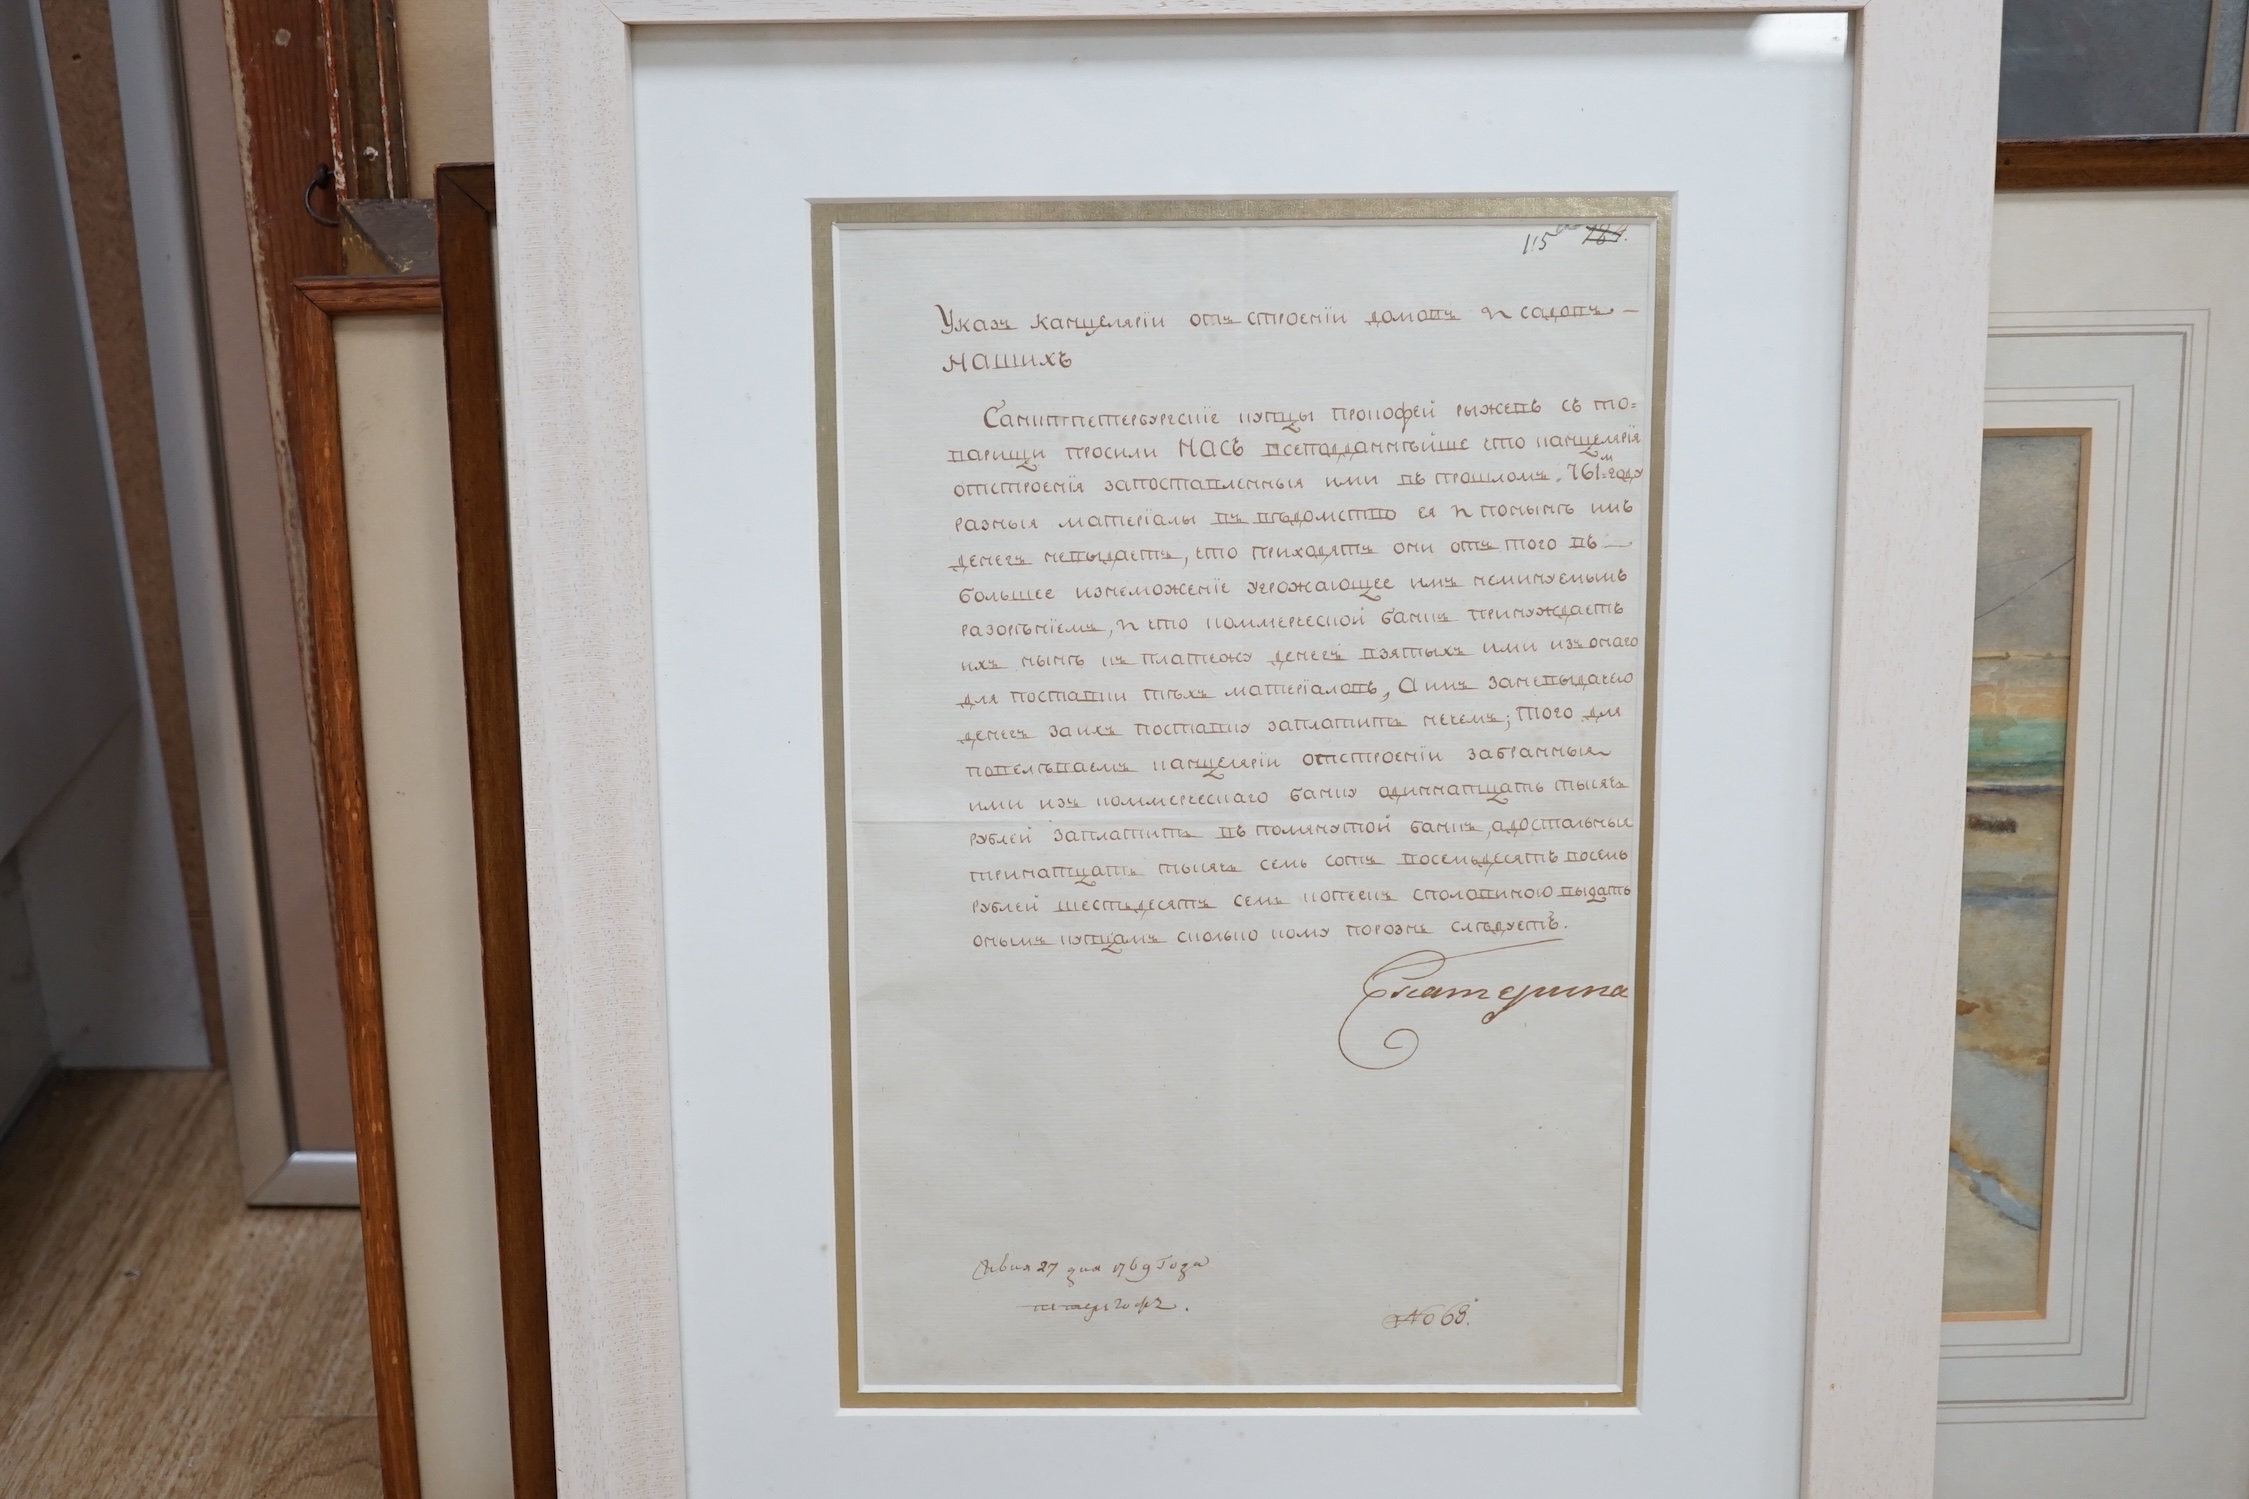 115 784.
Указъ канцеляріи отъ строеніи домовъ и садовъ
нашихъ
Санктпетербургскіе купцы прокофей рыжевъ съ то=
варищи просили НАСЪ всеподданнѣйше что канцелярія
отстроенія запоставленныя ими въ прошломъ 761м годѹ
разныя матеріалы въ вѣдомство ея и понынѣ имъ
денегъ невыдаетъ, что приходятъ они отъ того въ
большее изнеможеніе угрожающее имъ неминуемымъ
разорѣніемъ, и что коммерческой банкъ принуждаетъ
ихъ нынѣ къ платежу денегъ взятыхъ ими изъ онаго
для поставки тѣхъ матеріаловъ, а имъ заневыдачею
денегъ заихъ поставку заплатить нечемъ; того для
повелѣваемъ канцеляріи отстроеніи забранныя
ими изъ коммерческаго банку одиннатцать тысячь
рублей заплатить въ помянутой банкъ, адостальныя
тринатцать тысячь семь сотъ восемьдесятъ восемь
рублей шестьдесятъ семь копеекъ споловиною выдать
онымъ купцамъ сколько кому порознь слѣдуетъ.
Екатерина
27 дня 1769 года
No 68.